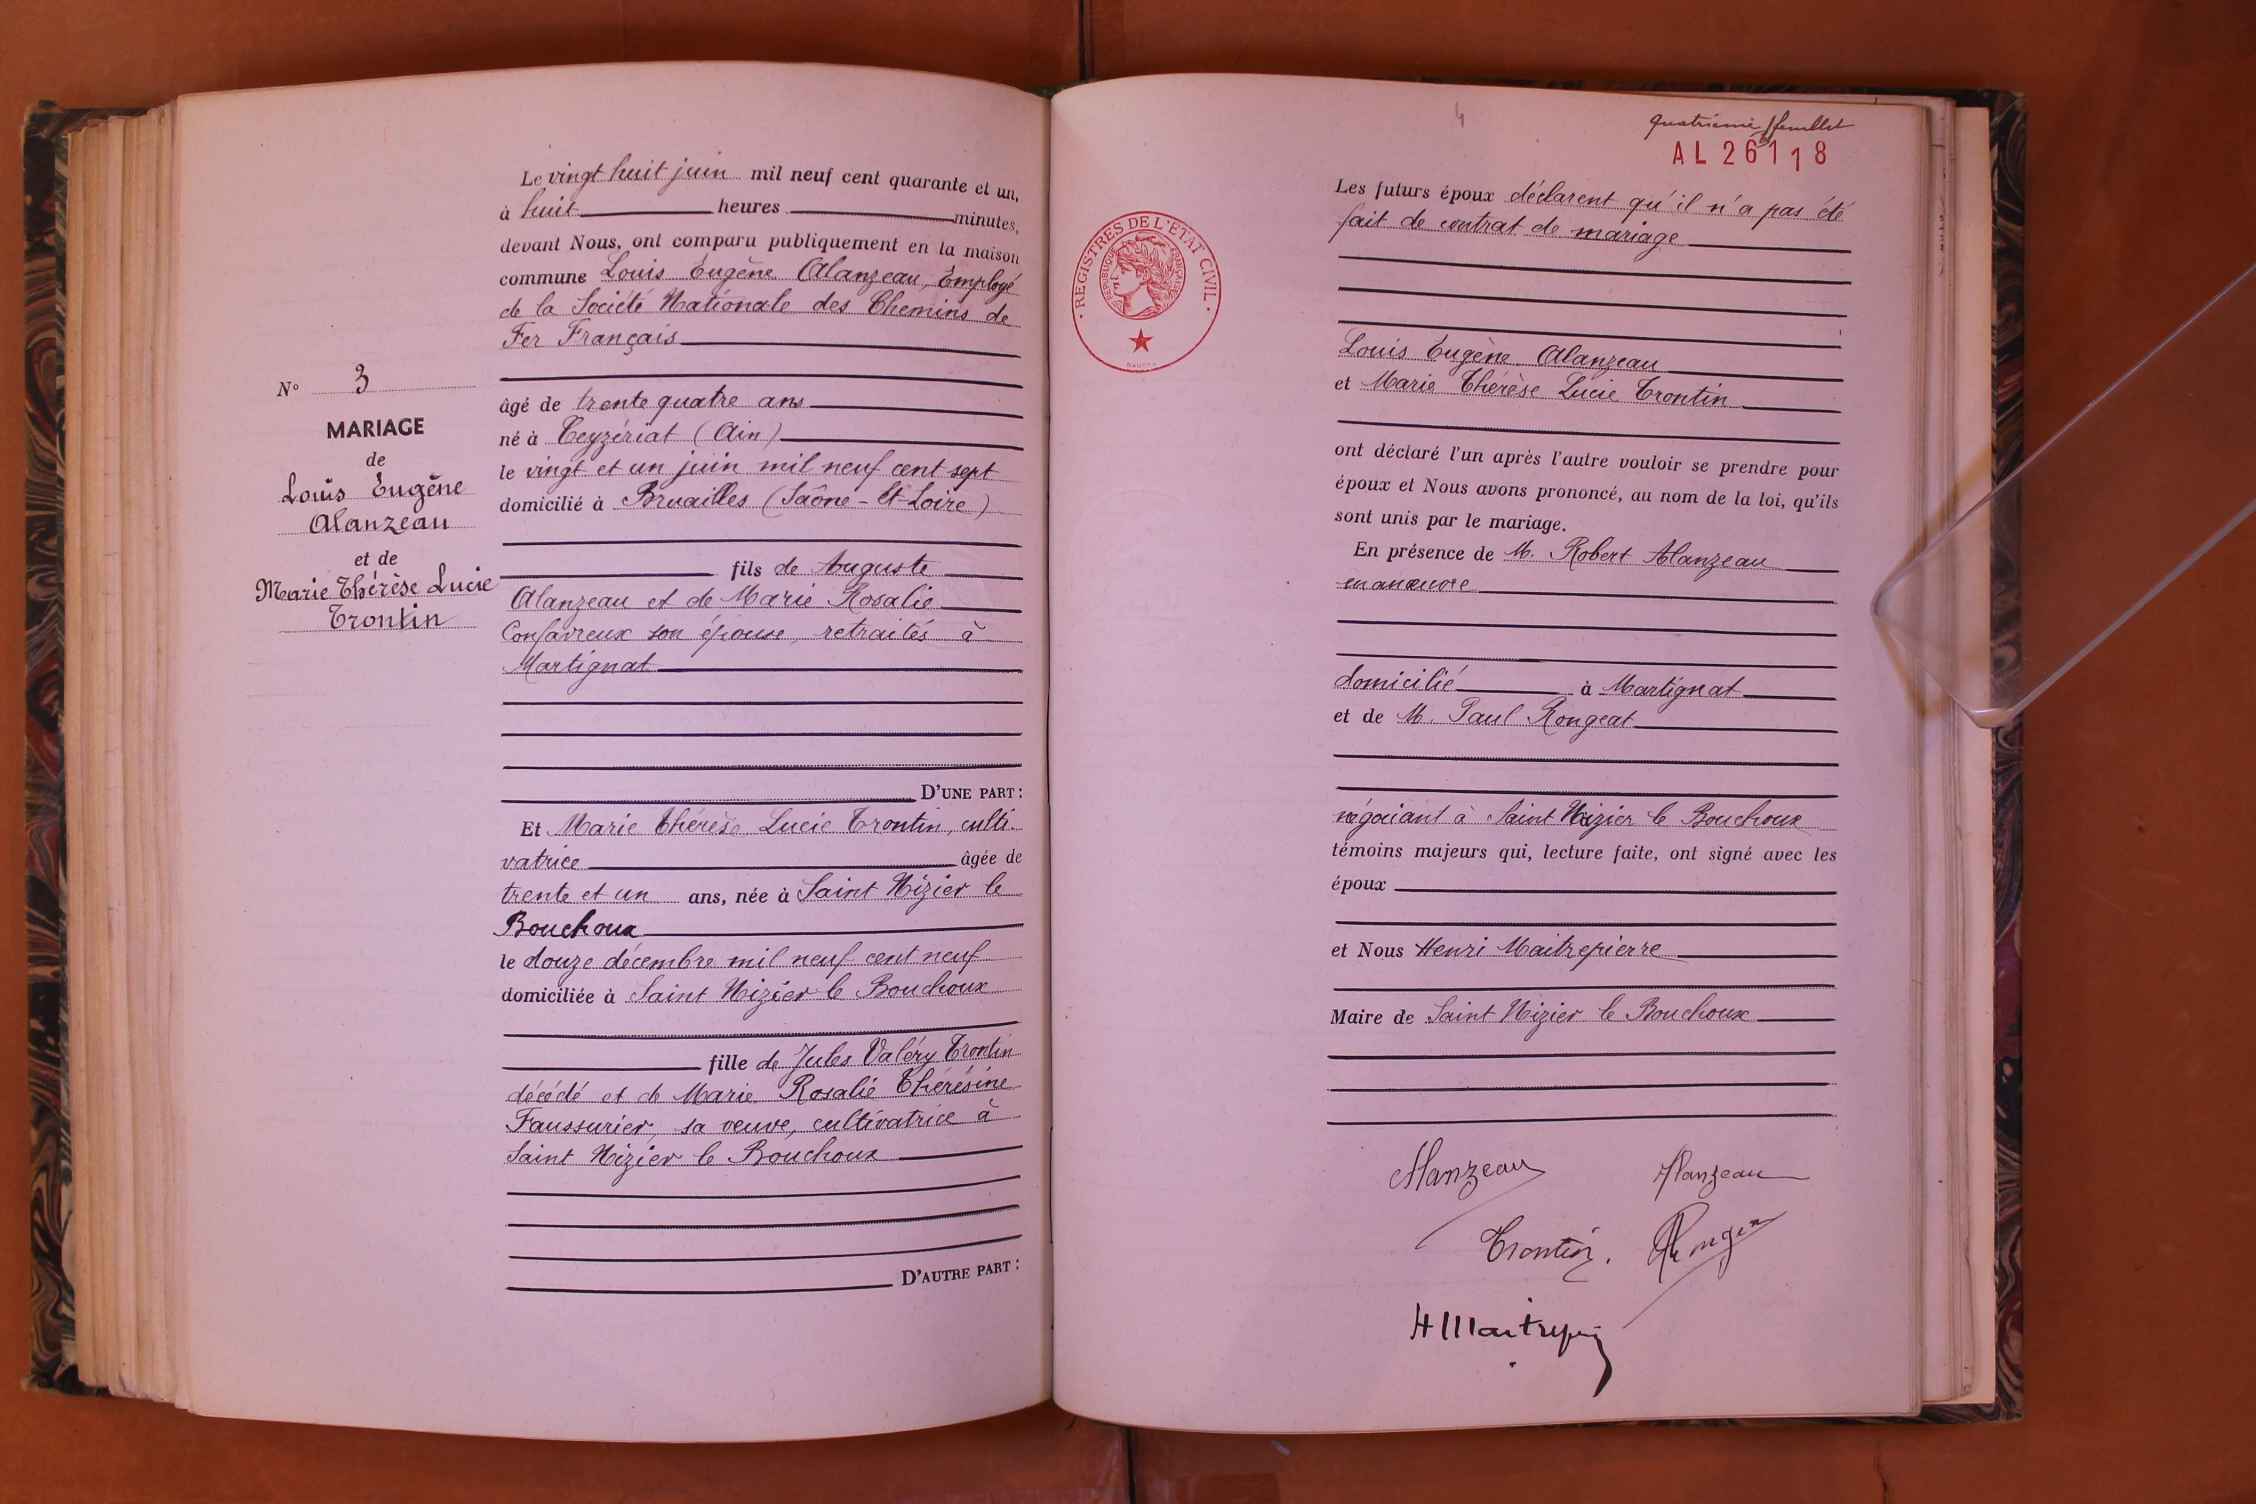 N° 3
MARIAGE
de
Louis Eugène
Alanzeau
et de
Marie Thérèse Lucie
Trontin
Le vingt huit juin mil neuf cent quarante et un,
à huit heures minutes,
devant Nous, ont comparu publiquement en la maison
commune Louis Eugène Alanzeau, Employé
de la Société Nationale des Chemins de
Fer Français
âgé de trente quatre ans
né à Ceyzériat (Ain)
le vingt et un juin mil neuf cent sept
domicilié à Bruailles (Saône-Et-Loire)
fils de Auguste
Alanzeau et de Marie Rosalie
Confavreux son épouse, retraités à
Martignat
D'UNE PART :
Et Marie Thérèse Lucie Trontin, culti-
vatrice âgée de
trente et un ans, née à Saint Nizier le
Bouchoux
le douze décembre mil neuf cent neuf
domiciliée à Saint Nizier le Bouchoux
fille de Jules Valéry Trontin
décédé et de Marie Rosalie Thérésine
Faussurier, sa veuve, cultivatrice à
Saint Nizier le Bouchoux
D'AUTRE PART :
4
quatrième feuillet
AL 26118
REGISTRES DE L'ETAT CIVIL
REPUBLIQUE FRANÇAISE
Les futurs époux déclarent qu'il n'a pas été
fait de contrat de mariage
Louis Eugène Alanzeau
et Marie Thérèse Lucie Trontin
ont déclaré l'un après l'autre vouloir se prendre pour
époux et Nous avons prononcé, au nom de la loi, qu'ils
sont unis par le mariage.
En présence de M. Robert Alanzeau
manœuvre
domicilié à Martignat
et de M. Paul Rongeat
négociant à Saint Nizier le Bouchoux
témoins majeurs qui, lecture faite, ont signé avec les
époux
et Nous Henri Maitrepierre
Maire de Saint Nizier le Bouchoux
Alanzeau Alanzeau
Trontin.